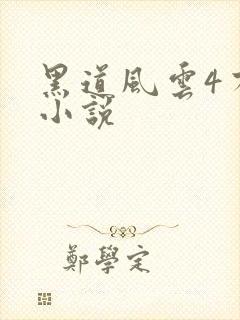 黑道風雲4
小說
鄭學定